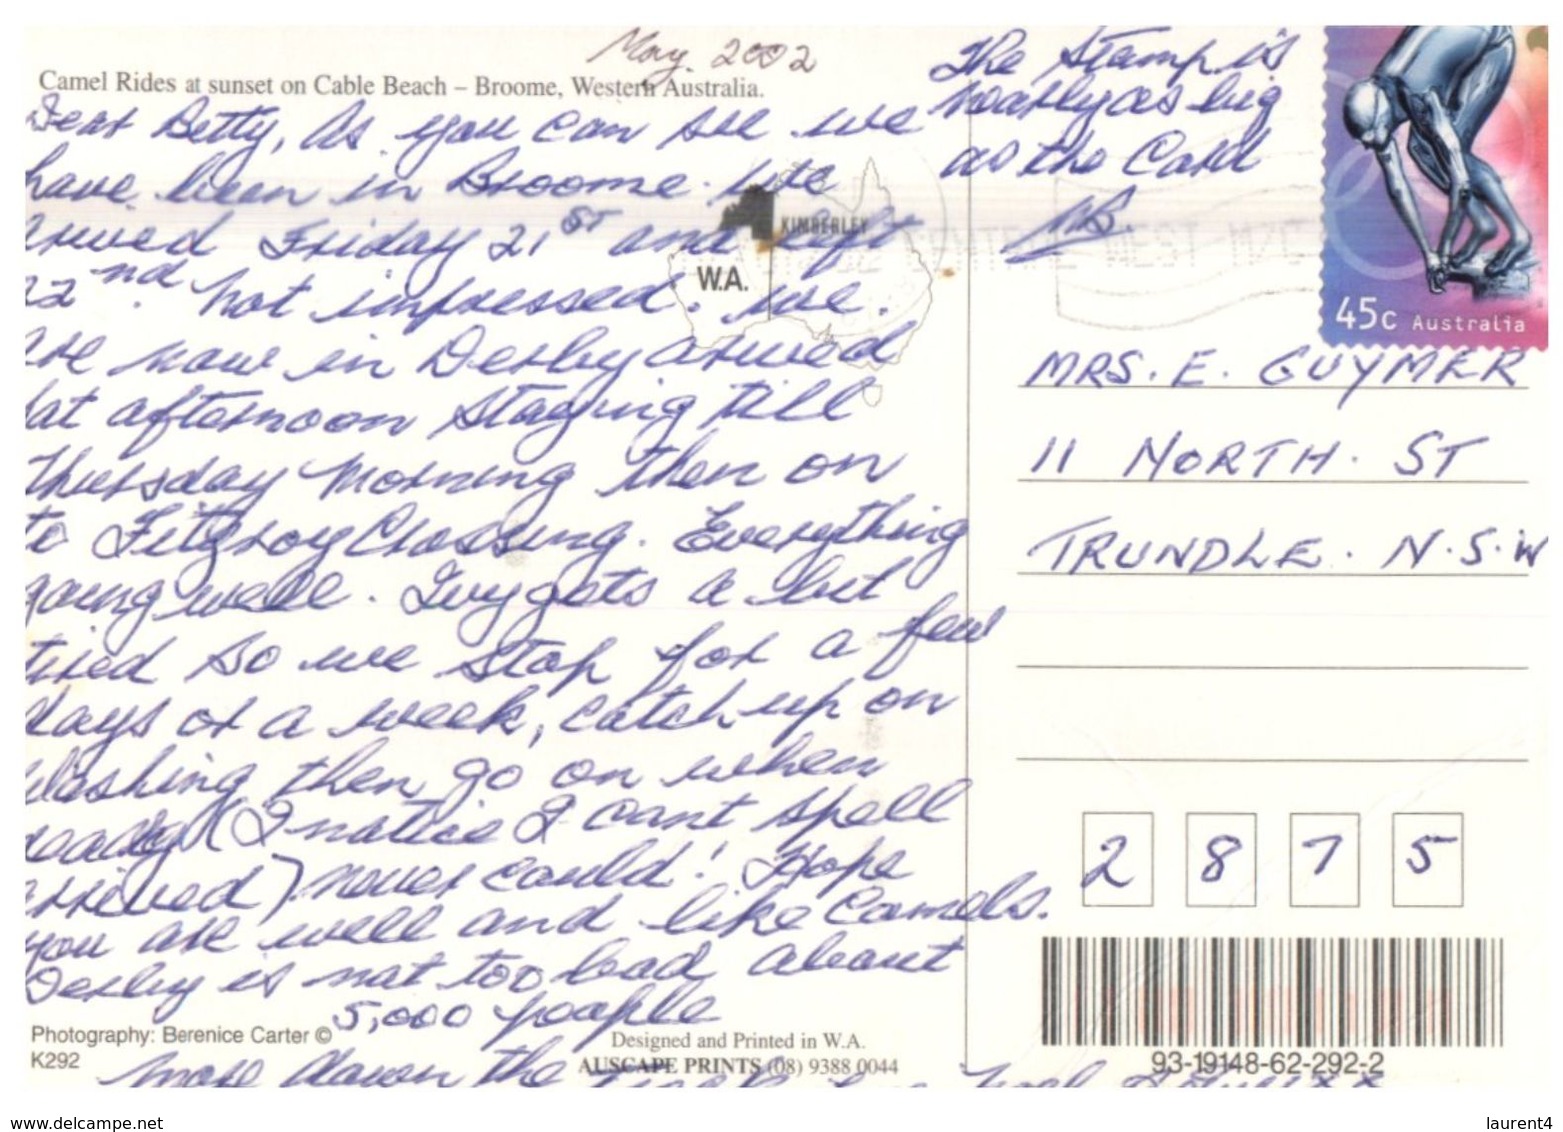 May. 2002
Camel Rides at sunset on Cable Beach – Broome, Western Australia.
Dear Betty, As you can see we
have been in Broome. We
arived Friday 21ST and left
22nd. not impressed. we.
are now in Derby arived
Sat afternoon staying till
Thursday Morning then on
to Fitzroy Crossing. Everything
going well. Ivy gets a bit
tired so we stop for a few
days or a week, catch up on
Washing then go on when
ready (I notice I cant spell
arrived) never could! Hope
you are well and like Camels.
Derby is not too bad about
5,000 people
more down the
The Stamp is
nearly as big
as the Card
KIMBERLEY
W.A.
45c Australia
MRS. E. GUYMER
11 NORTH. ST
TRUNDLE. N.S.W
2 8 7 5
93-19148-62-292-2
Photography: Berenice Carter ©
K292
Designed and Printed in W.A.
AUSCAPE PRINTS (08) 9388 0044
www.delcampe.net
laurent4